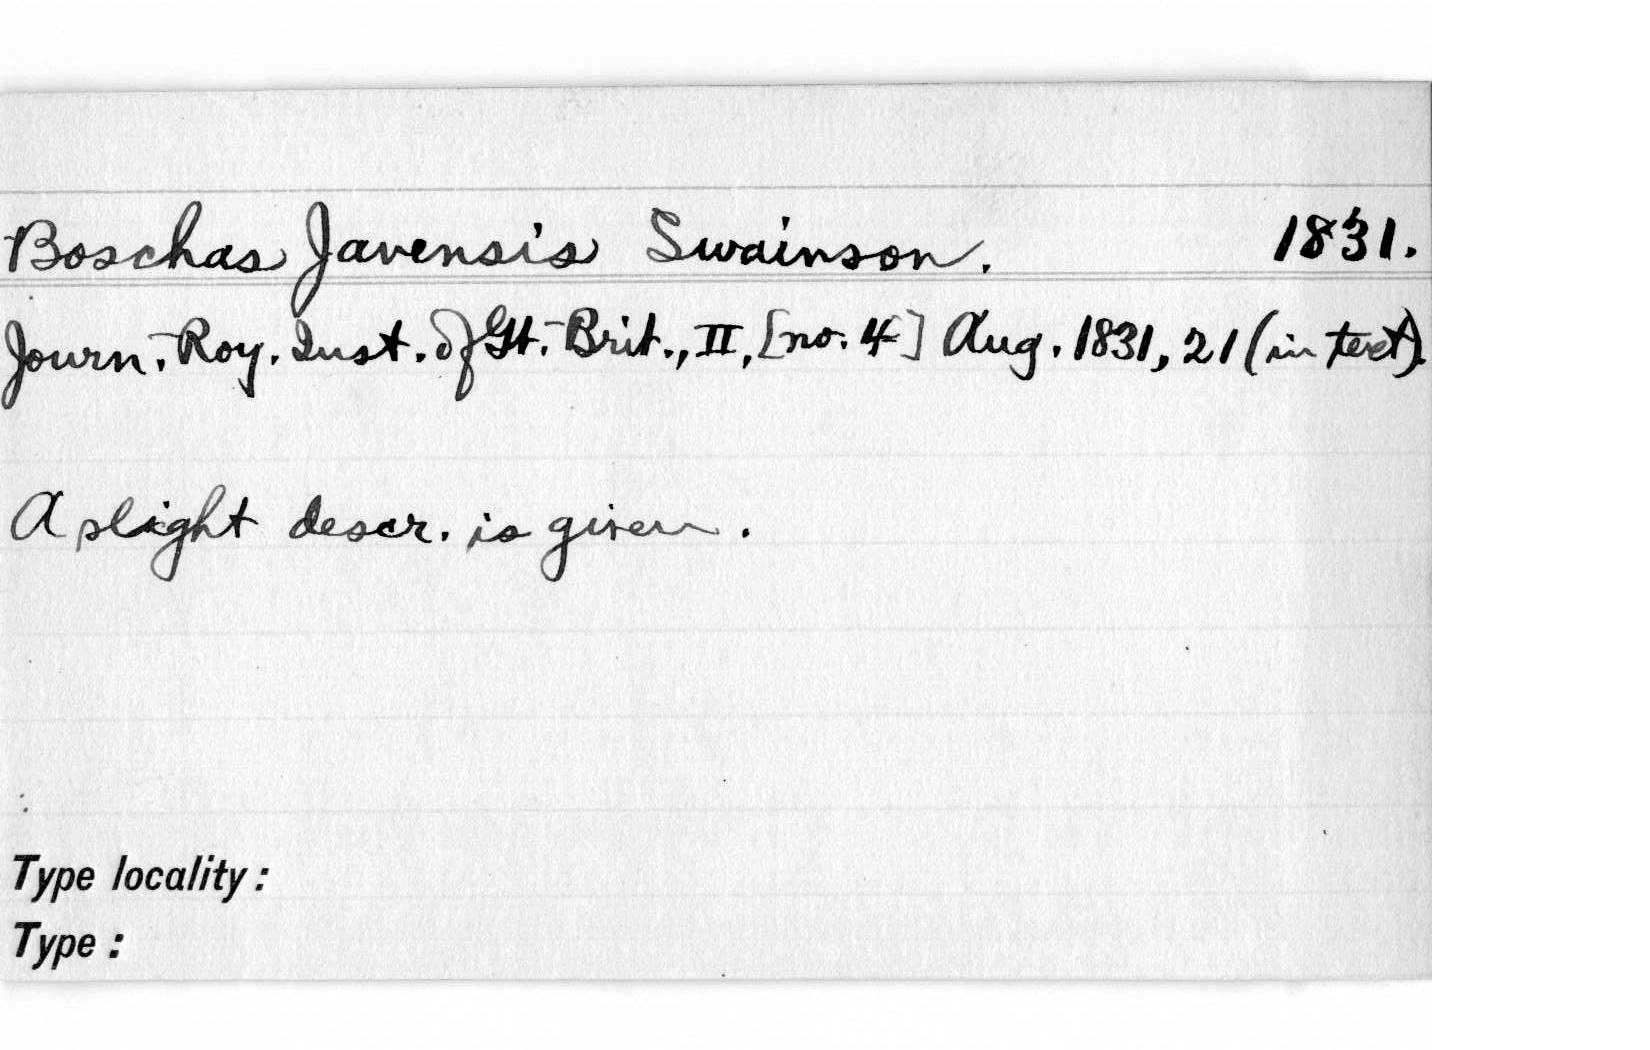 Boschas Javensis Swainson. 1831.
Journ. Roy. Inst. of Gt. Brit., II, [no. 4] Aug. 1831, 21 (in text).
A slight descr. is given.
Type locality:
Type: